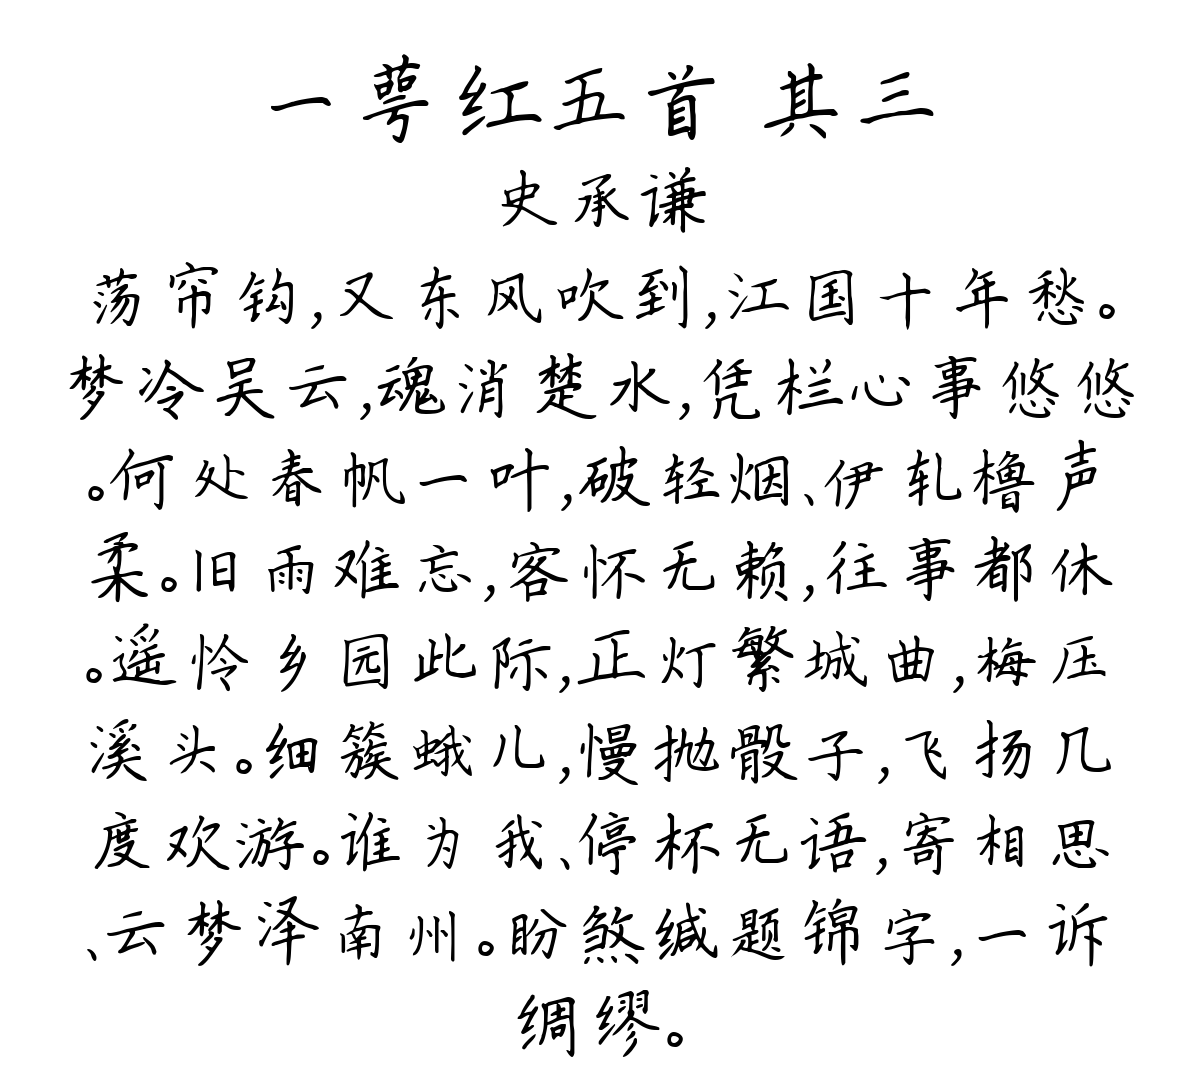 一萼红五首 其三
史承谦
荡帘钩,又东风吹到,江国十年愁。
梦冷吴云,魂消楚水,凭栏心事悠悠
。何处春帆一叶,破轻烟、伊轧橹声
柔。旧雨难忘,客怀无赖,往事都休
。遥怜乡园此际,正灯繁城曲,梅压
溪头。细簇蛾儿,慢抛骰子,飞扬几
度欢游。谁为我、停杯无语,寄相思
、云梦泽南州。盼煞缄题锦字,一诉
绸缪。